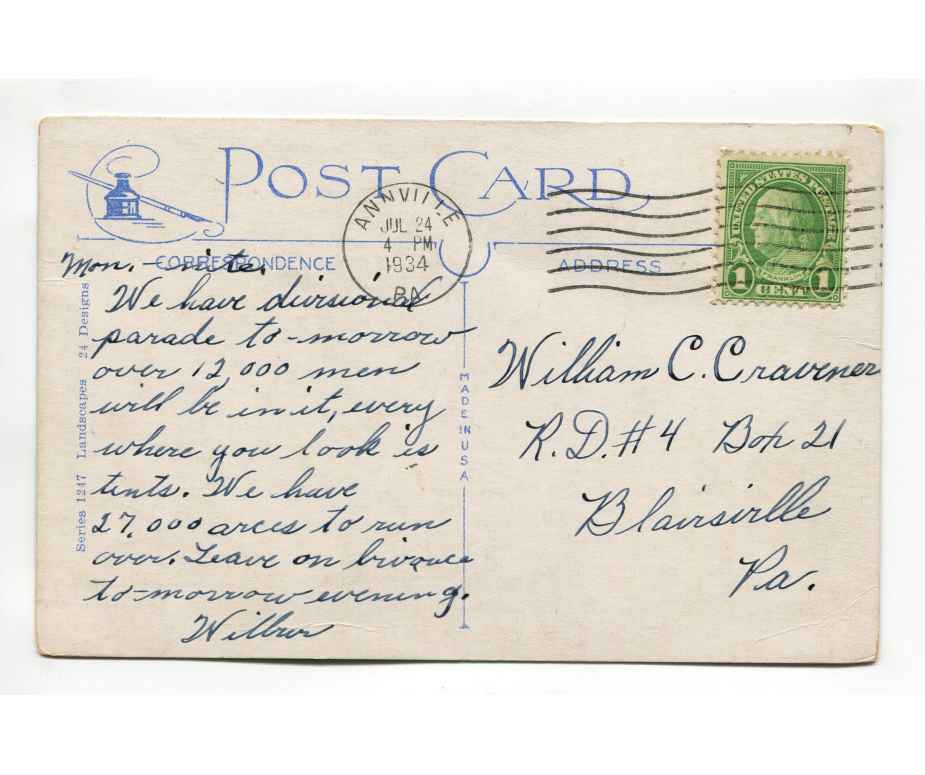 POST CARD
ANNVILLE
JUL 24
4 PM
1934
PA
UNITED STATES POSTAGE
1 CENT 1
CORRESPONDENCE
ADDRESS
Series 1247 Landscapes 24 Designs
MADE IN USA
Mon. - nite.
We have divisional
parade to-morrow
over 12,000 men
will be in it, every
where you look is
tents. We have
27,000 arces to run
over. Leave on
to-morrow evening.
Wilbur
William C. Cravener
R.D.#4 Box 21
Blairsville
Pa.